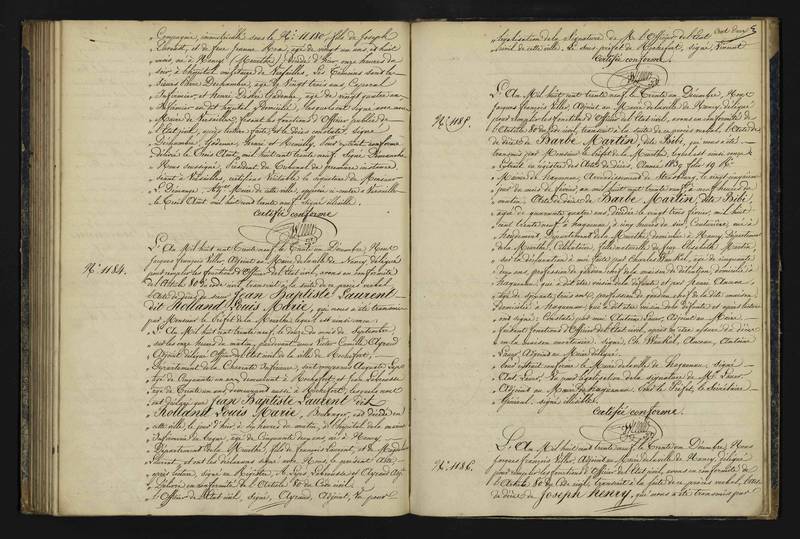 Compagnie, immatriculé sous le N° 11180, fils de Joseph
et de feue Jeanne
né à Nancy (Meurthe), décédé d'hier onze heures du
soir à l'hôpital militaire de Versailles. Les Témoins sont les
Sieurs Dechambre, âgé de Vingt trois ans, Caporal
Infirmier et Henri âgé de vingt quatre ans
Infirmier audit hôpital y domicilié, lesquels ont signé avec nous
Maire de Versailles, faisant les fonctions d'Officier public de
l'état civil, après lecture faite et le décès constaté, signé
Dechambre, et Remilly. Pour extrait conforme
délivré le Trois Août, mil huit cent trente neuf. Signé
Nous soussigné, Président du Tribunal de première instance
séant à Versailles, certifions Véritable la signature de Monsieur
Maire de cette ville, apposée ci-contre à Versailles
le Trois Août, mil huit cent trente neuf. signé illisible.
Certifié conforme
N° 1184.
L'An Mil huit cent Trente neuf, le Trente un Décembre, Nous
Jacques François Adjoint au Maire de la ville de Nancy, délégué
pour remplir les fonctions d'Officier de l'état civil, avons en conformité
de l'Article 80 du Code civil, transcrit à la suite de ce procès verbal,
l'Acte de décès du sieur Jean Baptiste Laurent
dit Rolland Louis Marie, qui nous a été transmis
par Monsieur le Préfet de la Meurthe, lequel est ainsi conçu:
L'An mil huit cent trente neuf, le douze du mois de Septembre,
sur les onze heures du matin, pardevant nous Victor Camille Ayraud
Adjoint délégué Officier de l'état civil de la ville de Rochefort,
Département de la Charente Inférieure, sont comparus Auguste
âgé de Cinquante un ans, demeurant à Rochefort, et Jean
âgé de Trente un ans demeurant aussi à Rochefort, lesquels nous
ont déclaré que Jean Baptiste Laurent dit
Rolland Louis Marie, Boulanger, est décédé en
cette ville, le jour d'hier, à dix heures du matin, à l'hôpital de la marine
Infirmerie du Bagne, âgé de Cinquante deux ans, né à Nancy
Département de la Meurthe, fils de François Laurent, et de Magdeleine
Laurent, et ont les déclarans signé avec Nous le présent Acte,
après lecture, signé au Registre, A. et Ayraud Adjt
Délivré en conformité de l'Article 80 du Code civil,
l'Officier de l'état civil, signé, Ayraud, Adjoint, Vu pour
légalisation de la Signature de M. l'Officier de l'état
civil de cette ville. Le sous préfet de Rochefort, signé,
Certifié conforme
N° 1185.
L'An Mil huit cent trente neuf, le Trente un Décembre, Nous
Jacques François Adjoint au Maire de la ville de Nancy, délégué
pour remplir les fonctions d'Officier de l'état civil, avons en conformité de
l'Article 80 du Code civil, transcrit à la suite de ce procès verbal, l'Acte de
de décès de Barbe Martin, dite Bibi, qui nous a été
transmis par Monsieur le Préfet de la Meurthe, lequel est ainsi conçu:
Extrait du registre des Actes de décès, Année 1839, folio 19 R°.
Mairie de haguenau, Arrondissement de Strasbourg, le vingt cinquième
jour du mois de février, an mil huit cent trente neuf, à neuf heures du
matin, Acte de décès de Barbe Martin, dite Bibi,
âgée de quarante quatre ans, décédée le vingt trois février, mil huit
cent trente neuf, à haguenau, à cinq heures du soir, Couturière, née à
Département de la Meurthe, domiciliée à Nancy, Département
de la Meurthe, Célibataire, fille naturelle de feue Elisabeth Martin,
sur la déclaration à moi faite par Charles Wenkel, âgé de cinquante
deux ans, profession de gardien chef de la maison de détention, domicilié à
Haguenau, qui a dit être voisin de la défunte, et par Pierre
âgé de soixante trois ans, profession de gardien chef de la dite maison,
domicilié à Haguenau, qui a dit être voisin de la défunte, et après lecture
ont signé; Constaté par moi Antoine Adjoint au Maire
faisant fonctions d'Officier de l'état civil, après m'être assuré du décès
en la maison mortuaire. signé, Ch. Wenkel, Antoine
Adjoint au Maire délégué.
Pour extrait conforme, le Maire de la ville de Haguenau, signé
Vu pour légalisation de la signature de Mr
Adjoint au Maire de Haguenau. Pour le Préfet, le Secrétaire
Général. signé illisible.
Certifié conforme.
N° 1186.
L'An Mil huit cent trente neuf, le Trente un Décembre, Nous
Jacques François Adjoint au Maire de la ville de Nancy, délégué
pour remplir les fonctions d'Officier de l'état civil, avons en conformité de
l'Article 80 du Code civil, transcrit à la suite de ce procès verbal, l'Acte
de décès de Joseph henry, qui nous a été transmis par